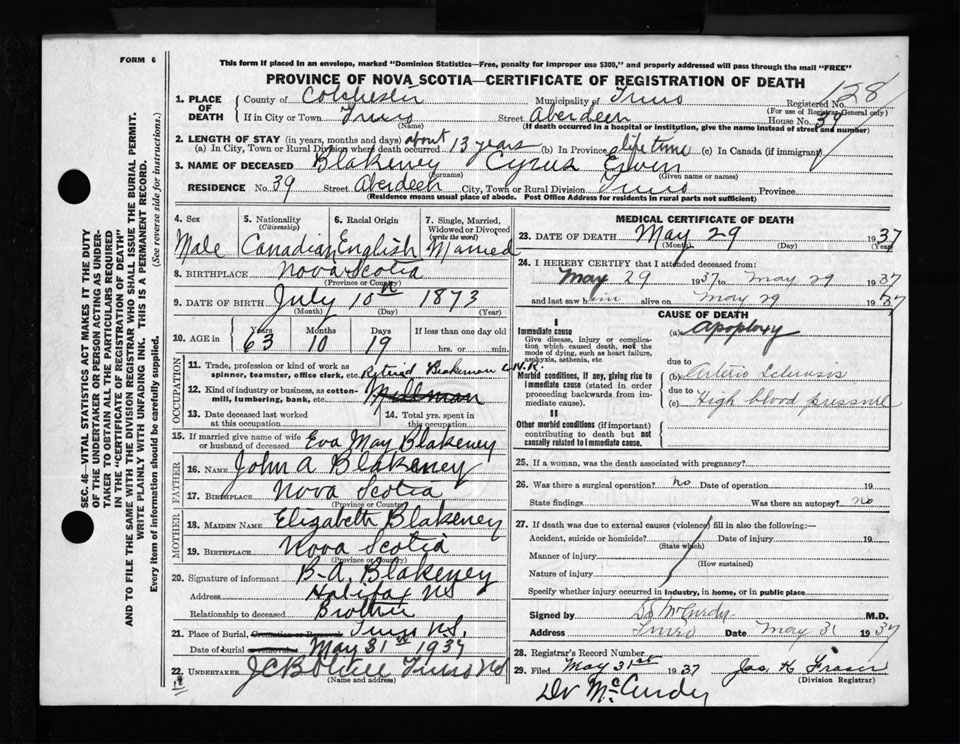 FORM 6
This form if placed in an envelope, marked "Dominion Statistics—Free, penalty for improper use $300," and properly addressed will pass through the mail "FREE"
PROVINCE OF NOVA SCOTIA—CERTIFICATE OF REGISTRATION OF DEATH
128
1. PLACE OF DEATH County of Colchester Municipality of Truro Registered No.
(For use of Registrar General only)
If in City or Town Truro Street Aberdeen House No. 39
(Name) (If death occurred in a hospital or institution, give the name instead of street and number)
2. LENGTH OF STAY (in years, months and days)
(a) In City, Town or Rural Division where death occurred about 13 years (b) In Province life time (c) In Canada (if immigrant)
3. NAME OF DECEASED Blakeney Cyrus Ervin
(Surname) (Given name or names)
RESIDENCE No. 39 Street Aberdeen City, Town or Rural Division Truro Province
(Residence means usual place of abode. Post Office Address for residents in rural parts not sufficient)
4. Sex Male
5. Nationality (Citizenship) Canadian
6. Racial Origin English
7. Single, Married, Widowed or Divorced (write the word) Married
8. BIRTHPLACE Nova Scotia
(Province or County)
9. DATE OF BIRTH July 10th 1873
(Month) (Day) (Year)
10. AGE in Years Months Days If less than one day old
63 10 19 hrs. or min.
OCCUPATION
11. Trade, profession or kind of work as spinner, teamster, office clerk, etc. Retired Brakeman C.N.R.
12. Kind of industry or business, as cotton-mill, lumbering, bank, etc.
13. Date deceased last worked at this occupation
14. Total yrs. spent in this occupation
15. If married give name of wife or husband of deceased Eva May Blakeney
FATHER
16. NAME John A Blakeney
17. Birthplace Nova Scotia
(Province or County)
MOTHER
18. MAIDEN NAME Elizabeth Blakeney
19. Birthplace Nova Scotia
(Province or County)
20. Signature of informant B. A. Blakeney
Address Halifax NS
Relationship to deceased Brother
21. Place of Burial, Cremation or Removal Truro N.S.
Date of burial or removal May 31st 1937
22. UNDERTAKER Truro NS
(Name and address)
MEDICAL CERTIFICATE OF DEATH
23. DATE OF DEATH May 29 1937
(Month) (Day) (Year)
24. I HEREBY CERTIFY that I attended deceased from:
May 29 1937 to May 29 1937
and last saw him alive on May 29 1937
CAUSE OF DEATH
I
Immediate cause
Give disease, injury or complication which caused death, not the mode of dying, such as heart failure, asphyxia, asthenia, etc
(a) Apoplexy
due to
Morbid conditions, if any, giving rise to immediate cause (stated in order proceeding backwards from immediate cause).
(b) Arterio Sclerosis
due to
(c) High blood pressure
II
Other morbid conditions (if important) contributing to death but not causally related to immediate cause.
25. If a woman, was the death associated with pregnancy?
26. Was there a surgical operation? no Date of operation 19
State findings Was there an autopsy? no
27. If death was due to external causes (violence) fill in also the following:—
Accident, suicide or homicide? Date of injury 19
(State which)
Manner of injury
(How sustained)
Nature of injury
Specify whether injury occurred in industry, in home, or in public place
Signed by S S McCurdy M.D.
Address Truro Date May 31 1937
28. Registrar's Record Number
29. Filed May 31st 1937 Jas. K Fraser
(Division Registrar)
Dr McCurdy
SEC. 46—VITAL STATISTICS ACT MAKES IT THE DUTY
OF THE UNDERTAKER OR PERSON ACTING AS UNDER-
TAKER TO OBTAIN ALL THE PARTICULARS REQUIRED
IN THE "CERTIFICATE OF REGISTRATION OF DEATH"
AND TO FILE THE SAME WITH THE DIVISION REGISTRAR WHO SHALL ISSUE THE BURIAL PERMIT.
WRITE PLAINLY WITH UNFADING INK. THIS IS A PERMANENT RECORD.
Every item of information should be carefully supplied. (See reverse side for instructions.)